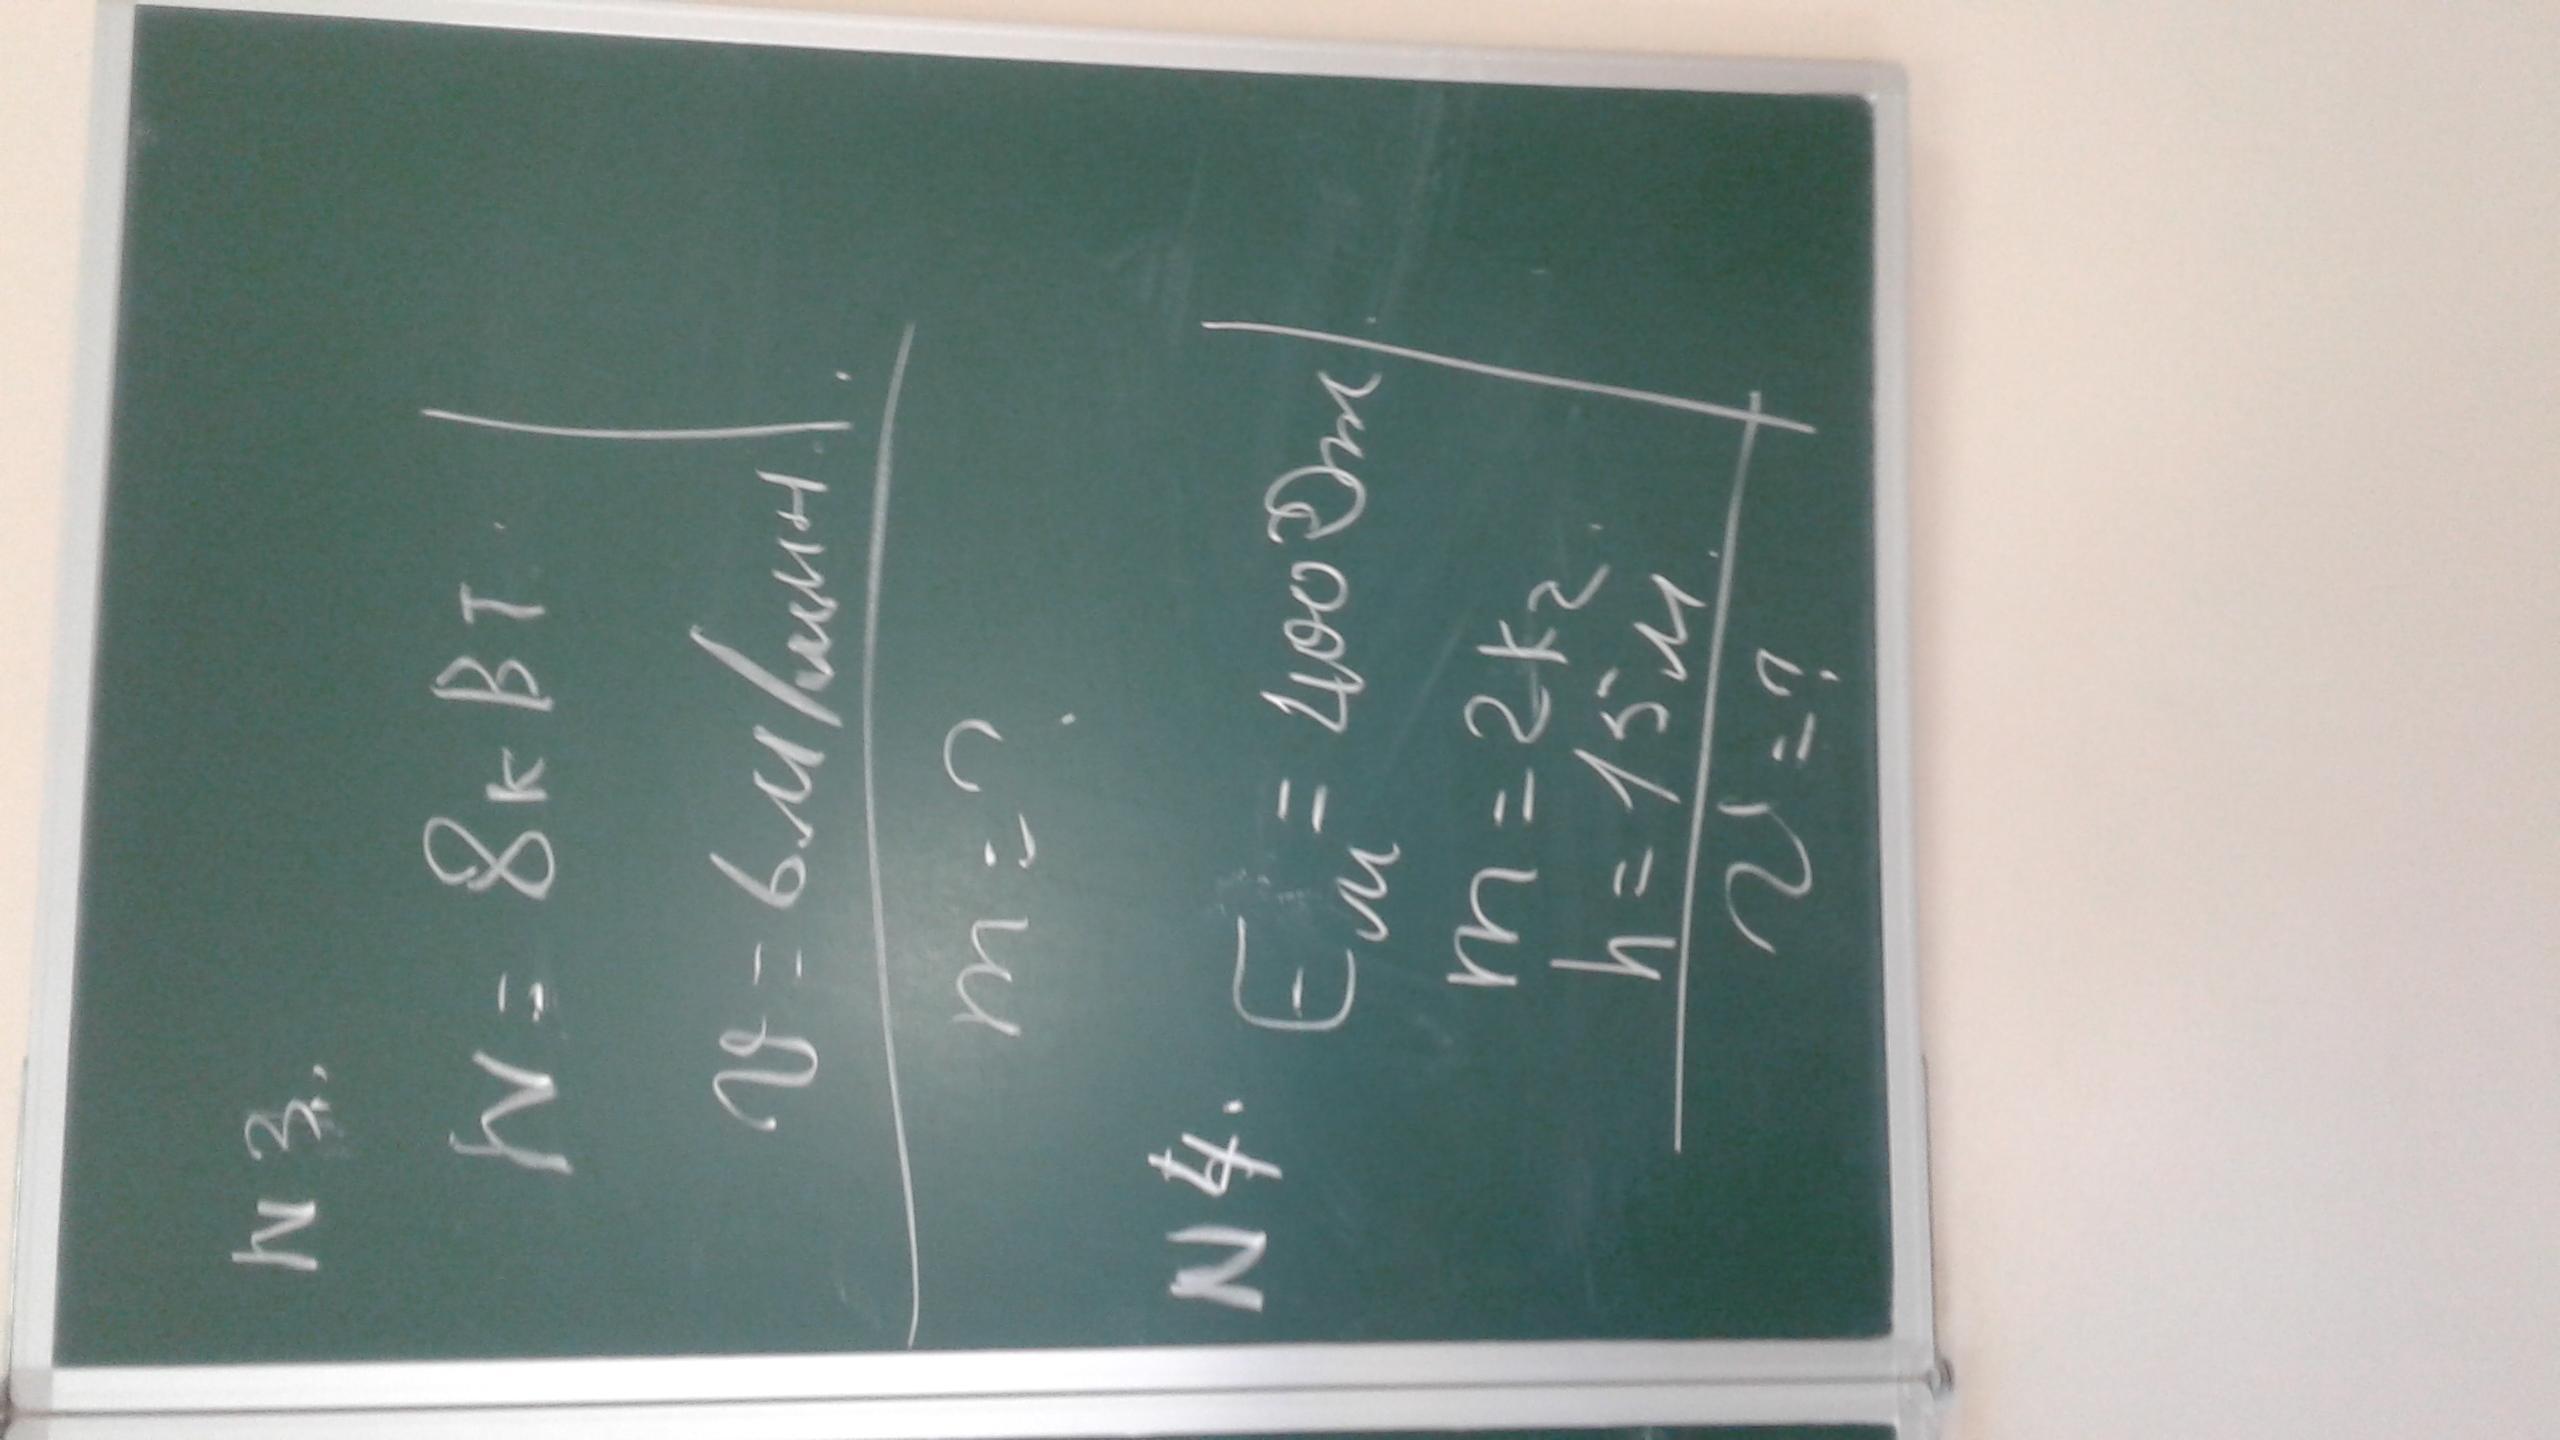 N 3.
N = 8 кВт.
v = 6 м/мин.
m = ?
N 4.
Eм = 400 Дж
m = 2 кг.
h = 15 м.
v = ?